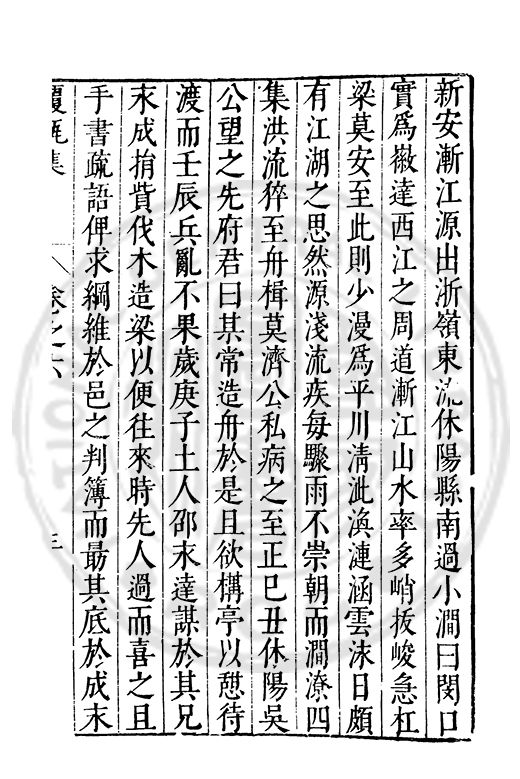 新安漸江源出浙嶺東流休陽縣南過小澗曰閔口
實爲徽達西江之周道漸江山水率多峭拔峻急杠
梁莫安至此則少漫爲平川淸泚渙漣涵雲沬日頗
有江湖之思然源淺流疾每驟雨不崇朝而澗潦四
集洪流猝至舟楫莫濟公私病之至正己丑休陽吳
公望之先府君曰其常造舟於是且欲構亭以憇待
渡而壬辰兵亂不果歲庚子土人邵末達謀於其兄
末成捐貲伐木造梁以便往來時先人過而喜之且
手書疏語俾求綱維於邑之判簿而最其底於成末
覆瓿集 卷之六 三